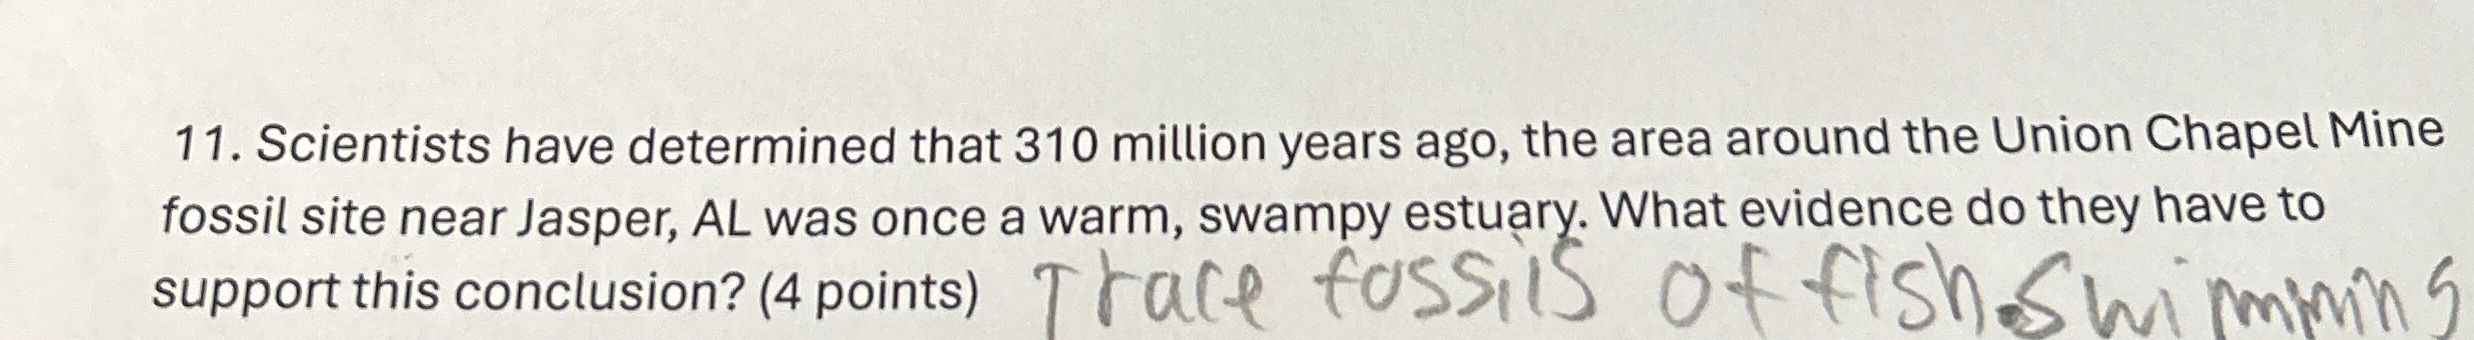 11. Scientists have determined that 310 million years ago, the area around the Union Chapel Mine
fossil site near Jasper, AL was once a warm, swampy estuary. What evidence do they have to
support this conclusion? (4 points) Trace fossils of fish swimming